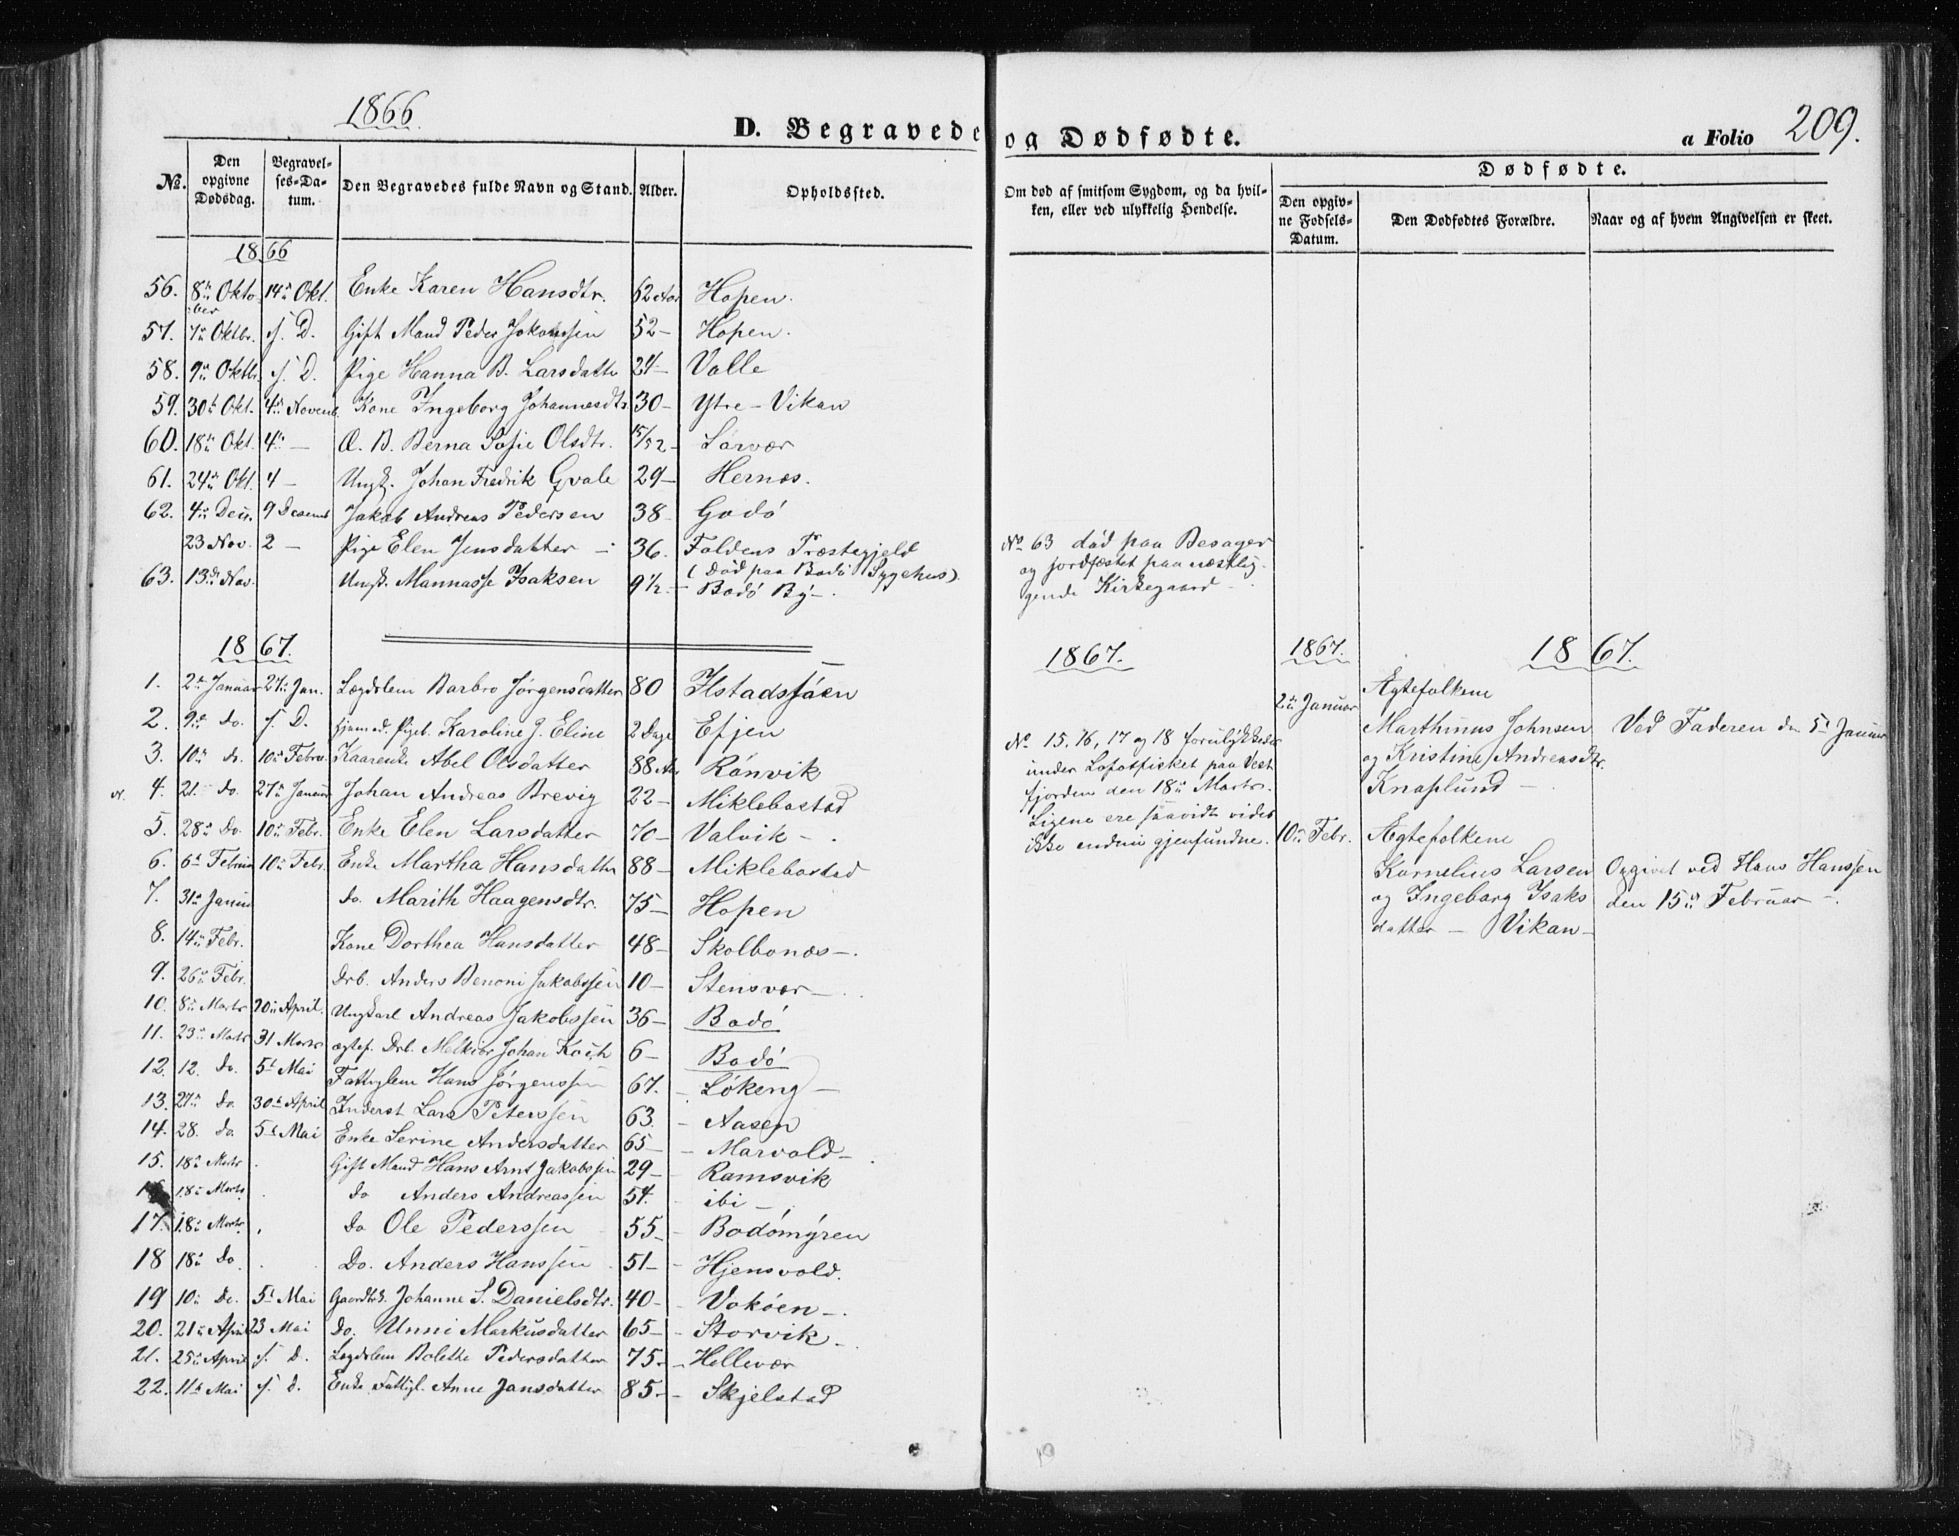 1866
D. Begravede og Dødfødte.
a Folio 209.
No.
Den opgivne Dødsdag.
Begravelses-Datum.
Den Begravedes fulde Navn og Stand.
Alder.
Opholdssted.
Om død af smitsom Sygdom, og da hvilken, eller ved ulykkelig Hendelse.
Dødfødte.
Den opgivne Fødsels-Datum.
Den Dødfødtes Forældre.
Naar og af hvem Angivelsen er skeet.
1866
56. 8de Oktober 14de Okt. Enke Karen Hansdtr. 62 Aar Hopen.
57. 7de Oktbr. s. D. Gift Mand Peder Jokumsen 52 - Hopen.
58. 9de Oktbr. s. D. Pige Hanna B. Larsdatter 24 - Valle
59. 30te Okt. 4de Novemb. Kone Ingeborg Johannesdtr. 30 - Ytre-Vikan
60. 18de Okt. 4de - Æ. B. Berna Sofie Olsdtr. 15/52 - Lørvær
61. 24de Okt. 4 - Ungk. Johan Fredrik Qvale 29 - Hernæs.
62. 4de Decr. 9 Decemb Jakob Andreas Pedersen 38 - Godø
23 Nov. 2 - Pige Elen Jensdatter - 36. Foldens Præstegjeld
(Død paa Bodø Sygehus).
63. 13de Nov. Ungk. Mannasse Isaksen 9 1/2 - Bodø By -.
No 63 død paa Besager
og jordfæstet paa næstlig-
gende Kirkegaard -.
1867.
1. 2de Januar 27de Jan. Lægdslem Barbro Jørgensdatter 80 Ilstadsjøen
2. 9de do. s. D. hjemmed. Pigeb. Karoline J. Eline 2 Dage Efjen
3. 10de do. 10de Febru. Kaarenke Abel Olsdatter 88 Aar Rønvik
4. 21 - do. 27de Januar Johan Andreas Brevig 22 - Miklebostad
5. 28de do. 10de Febr. Enke Elen Larsdatter 70 - Valvik -.
6. 6te Februar 10de Febr. Enke Martha Hansdatter 88 - Miklebostad
7. 31te Januar do. Marith Haagensdtr. 75 - Hopen
8. 14de Febr. Kone Dorthea Hansdatter 48 - Skolbonæs -.
9. 26de Febr. Drb. Anders Benoni Jakobssen 10 - Stensvær -.
10. 8de Marts 20de April. Ungkarl Andreas Jakobssen 36 - Bodø
11. 23de Marts 31 Marts ægtef. Drb. Melkior Johan Koch 6 - Bodø
12. 12. do. 5te Mai Fattiglem Hans Jørgenssen 67. - Løkeng -
13. 27de do. 30te April Inderst Lars Peterssen 63. - Aasen
14. 28. do. 5te Mai Enke Serine Andersdatter 65 - Marvold -
15. 18de Marts Gift Mand Hans Arnt Jakobssen 29 - Ramsvik
16 18de Marts do Anders Andreassen 54. - ibi -
17. 18de Marts do Ole Pederssen 55 - Bodømyren
18 18de do Do. Anders Hanssen 51 - Hjensvold.
19 10de do. 5te Mai Gaardbr. Johanne S. Danielsdtr. 40 - Vokøen -.
20. 21de April 23 Mai do. Unni Markusdatter 65 - Storvik -.
21. 25de April s. D. Lægdslem Bolette Pedersdatter 75 - Hellevær
22. 11te Mai s. d. Enke Fattigl. Anne Jansdatter 85 - Skjelstad
1867.
No 15, 16, 17 og 18 forulykkede
under Lofotfisket paa Vest-
fjorden den 18de Marts.
Ligene ere saavidt vides
ikke endnu gjenfundne.
1867. 1867.
2de Januar Ægtefolkene
Marthinus Johnsen
og Kristine Andreasdtr.
Knaplund -
Ved Faderen den 5te Januar
10de Febr. Ægtefolkene
Kornelius Larsen
og Ingeborg Isaks
datter - Vikan -
Opgivet ved Hans Hanssen
den 15de Februar -.